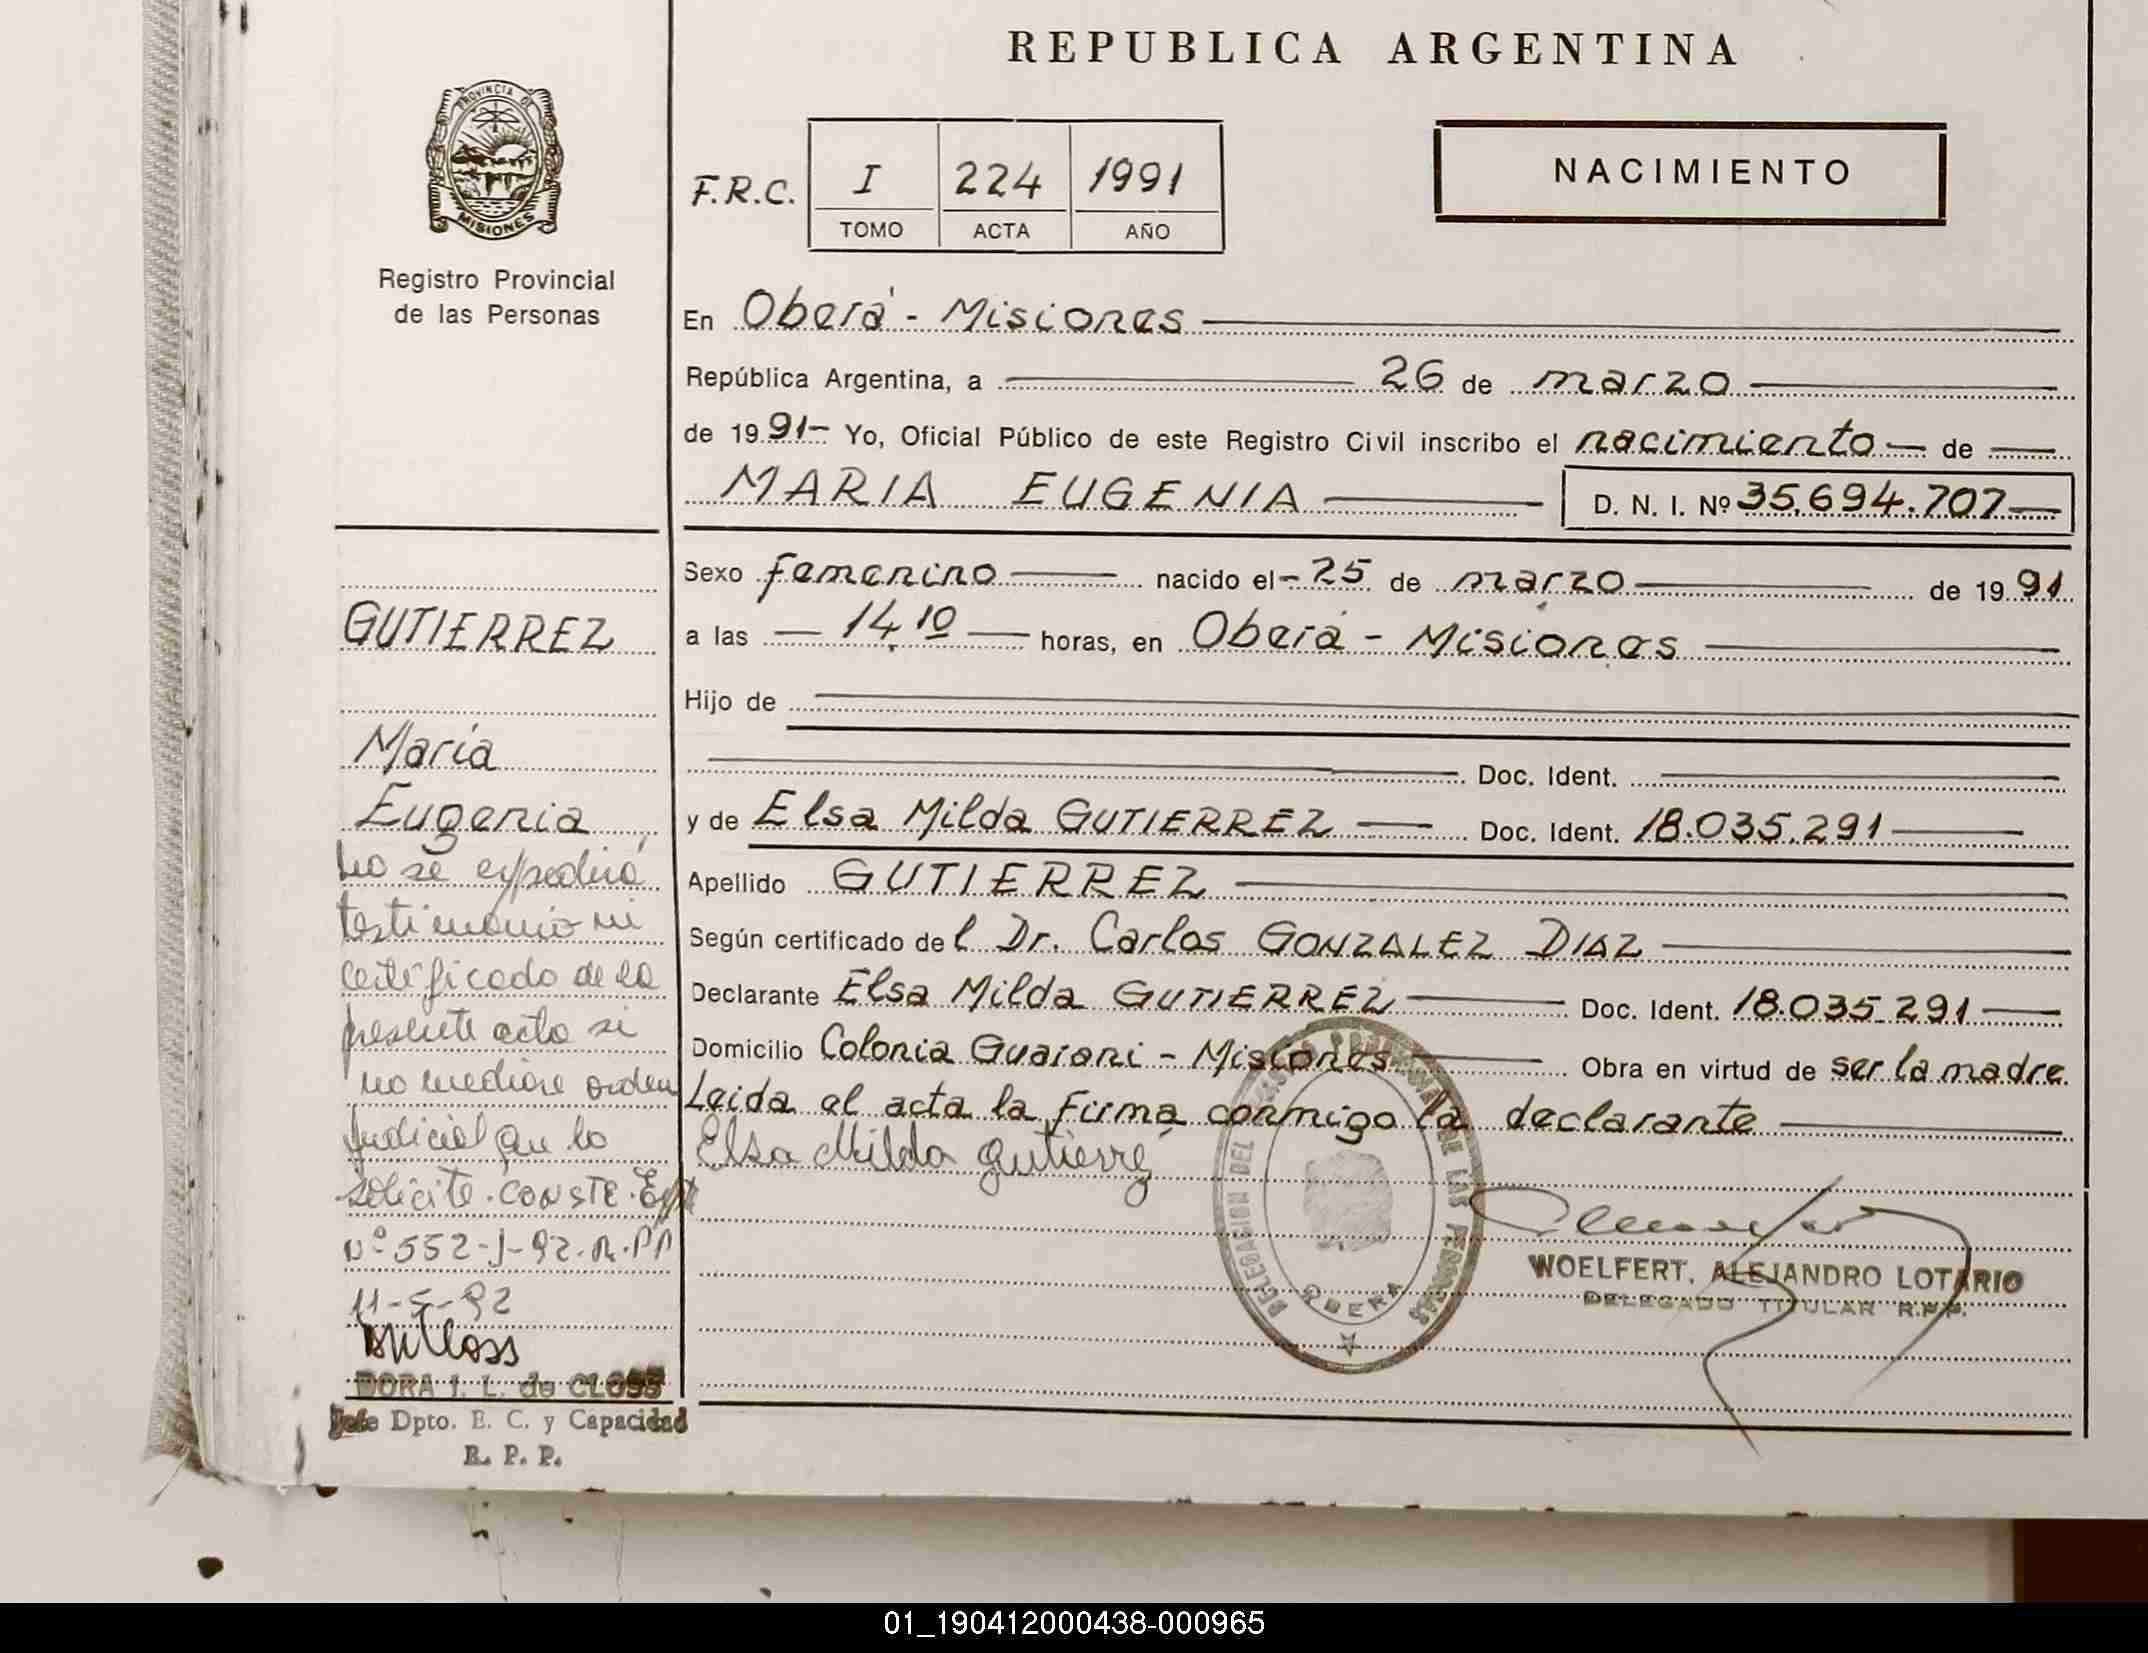 REPUBLICA ARGENTINA
PROVINCIA DE
MISIONES
Registro Provincial
de las Personas
F.R.C. I 224 1991
TOMO ACTA AÑO
NACIMIENTO
En Oberá - Misiones
República Argentina, a 26 de marzo
de 1991- Yo, Oficial Público de este Registro Civil inscribo el nacimiento de
MARIA EUGENIA D. N. I. Nº 35.694.707
Sexo femenino nacido el 25 de marzo de 1991
a las 14.10 horas, en Oberá - Misiones
Hijo de
Doc. Ident.
y de Elsa Milda GUTIERREZ Doc. Ident. 18.035.291
Apellido GUTIERREZ
Según certificado del Dr. Carlos GONZALEZ DIAZ
Declarante Elsa Milda GUTIERREZ Doc. Ident. 18.035.291
Domicilio Colonia Guarani - Misiones Obra en virtud de ser la madre.
Leida el acta la firma conmigo la declarante
Elsa Milda Gutierrez
DELEGACION DEL REGISTRO PROVINCIAL DE LAS PERSONAS
OBERA
WOELFERT, ALEJANDRO LOTARIO
DELEGADO TITULAR R.P.P.
GUTIERREZ
María
Eugenia
No se expedirá
testimonio ni
certificado de la
presente acta si
no mediare orden
judicial que lo
solicite. CONSTE. Expte
Nº 552-J-92-R.PP
11-5-92
DORA I. L. de CLOSS
Jefe Dpto. E. C. y Capacidad
R. P. P.
01_190412000438-000965